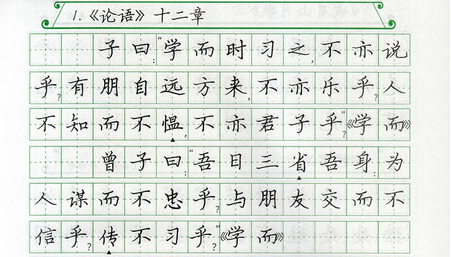 1.《论语》十二章
子曰:“学而时习之,不亦说
乎?有朋自远方来,不亦乐乎?人
不知而不愠,不亦君子乎?”《学而》
曾子曰:“吾日三省吾身:为
人谋而不忠乎?与朋友交而不
信乎?传不习乎?”《学而》